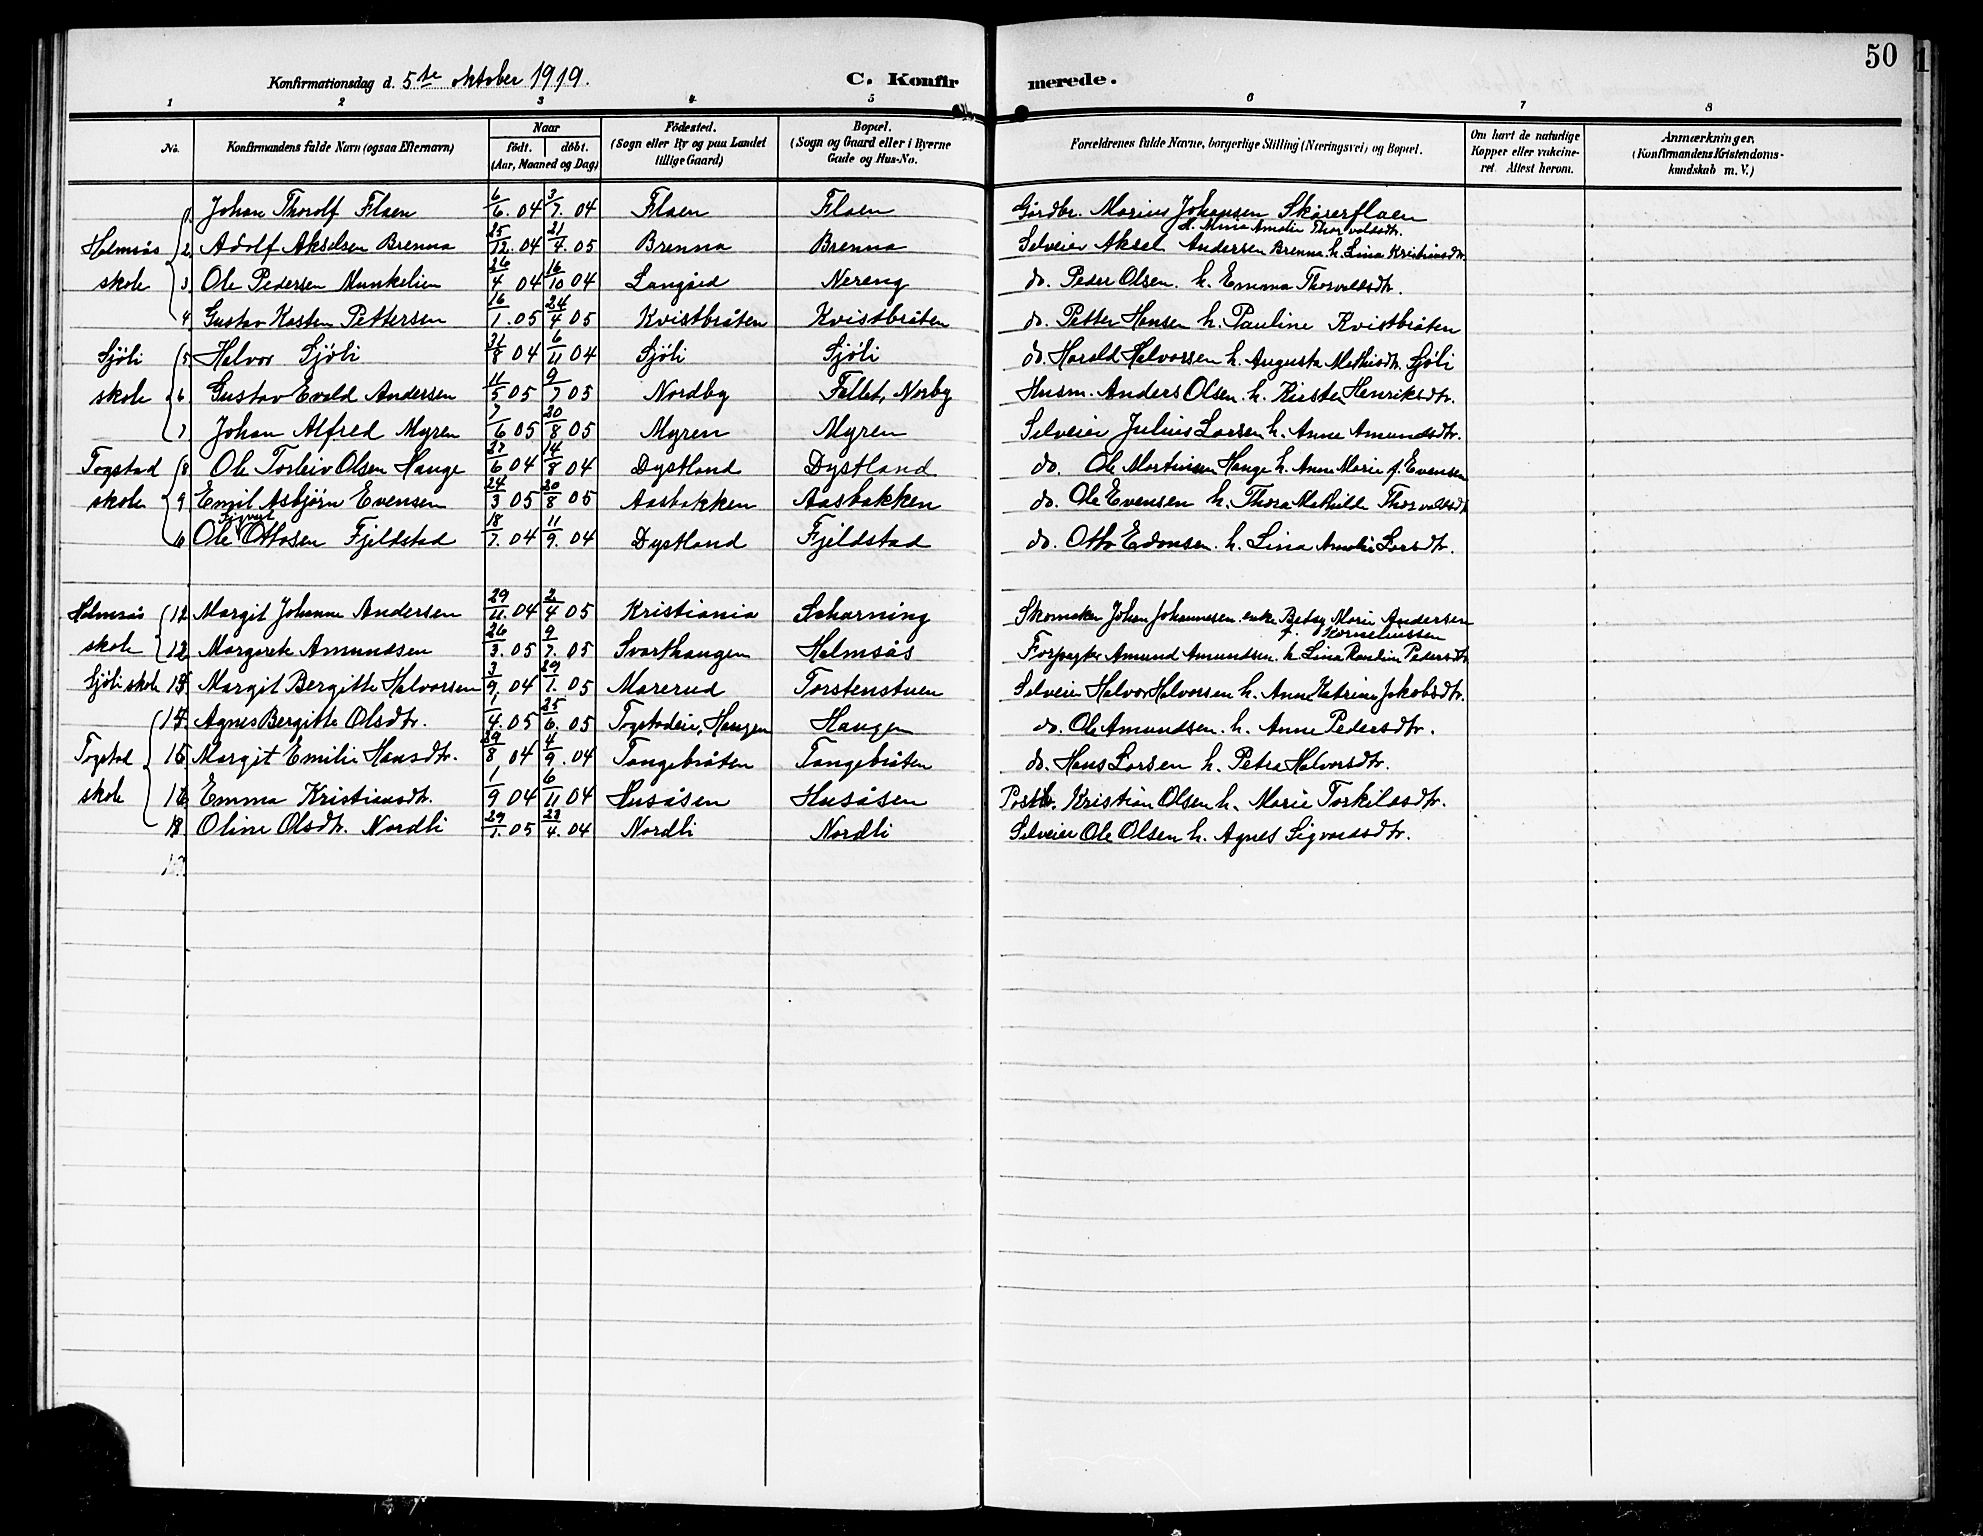 50
Konfirmationsdag d. 5te oktober 1919.
C. Konfirmerede.
1 2 3 4 5 6 7 8
No. | Konfirmandens fulde Navn (ogsaa Efternavn) | Naar födt. döbt. (Aar, Maaned og Dag) | Födested. (Sogn eller By og paa Landet tillige Gaard) | Bopæl. (Sogn og Gaard eller i Byerne Gade og Hus-No. | Forældrenes fulde Navne, borgerlige Stilling (Næringsvei) og Bopæl. | Om havt de naturlige Kopper eller vakcineret. Attest herom. | Anmærkninger. (Konfirmandens Kristendomskundskab m. V.)
1 Johan Thorolf Flaen 6/6. 04 3/7. 04 Flaen Flaen Gårdbr. Marius Johansen Skårerflaen
h. Mina Amalie Thorvaldsdtr.
Holmsås skole 2 Adolf Akselsen Brenna 25/12. 04 21/4. 05 Brenna Brenna Selveier Aksel Andersen Brenna h. Lina Kristiansdtr.
3 Ole Pedersen Munkelien 26/4 04 16/10 04 Nereng do. Peder Olsen. h. Emma Thorvaldsdtr.
4 Gustav Pettersen 16/1. 05 24/4 05 Kvistbråten Kvistbråten do. Petter Hansen h. Pauline Kvistbråten
Sjöli skole 5 Halvor Sjöli 31/8 04 6/11 04 Sjöli Sjöli do. Harald Halvorsen h. Augusta Mathisdtr. Sjöli
6 Gustav Evald Andersen 11/5 05 9/7 05 Nordby Fallet, Norby Husm. Anders Olsen. h. Kirsten Henriksdtr.
7 Johan Alfred Myren 7/6 05 20/8 05 Myren Myren Selveier Julius Larsen h. Anne Amundsdtr.
Togstad skole 8 Ole Torleiv Olsen Hauge /6 04 14/8 04 Dystland Dystland do. Ole Martinsen Hauge h. Anne Marie f. Evensen
9 Emil Asbjørn Evensen 24/3 05 20/8 05 Aasbakken Aasbakken do. Ole Evensen h. Thora Mathilde Thorvaldsdt
Sigurd
Ole Ottosen Fjeldstad 18/7. 04 11/9. 04 Dystland Fjeldstad do. Otto h. Lina Amalie Larsdtr.
Holmsås skole Margit Johanne Andersen 29/11. 04 2/4 05 Kristiania Scharning Skomaker Johan Johannesen enke Betsy Marie Andersen
f. Korneliussen
Margarete Amundsen 26/3. 05 9/7. 05 Svarthaugen Holmsås Forpagter Amund Amundsen h. Lina Pauline Pedersdtr
Sjöli skole Margit Bergitte Halvorsen 3/9. 04 29/1. 05 Marerud Torstenstuen Selveier Halvor Halvorsen h. Anne Katrine Jakobsdtr.
Togstad skole Agnes Bergitte Olsdtr. 1/4. 05 25/6. 05 Togstadeie, Haugen Haugen do. Ole Amundsen. h. Anne Pedersdtr.
Margit Emilie Hansdtr. 29/8. 04 4/9. 04 Tangebråten Tangebråten do. Hans Larsen h. Petra Halvorsdtr.
Emma Kristiansdtr. 1/9 04 6/11 04 Husåsen Husåsen Kristian Olsen h. Marie Torkildsdtr.
Oline Olsdtr. Nordli 29/1. 05 23/4. 04 Nordli Nordli Selveier Ole Olsen h. Agnes Sigvardsdtr.